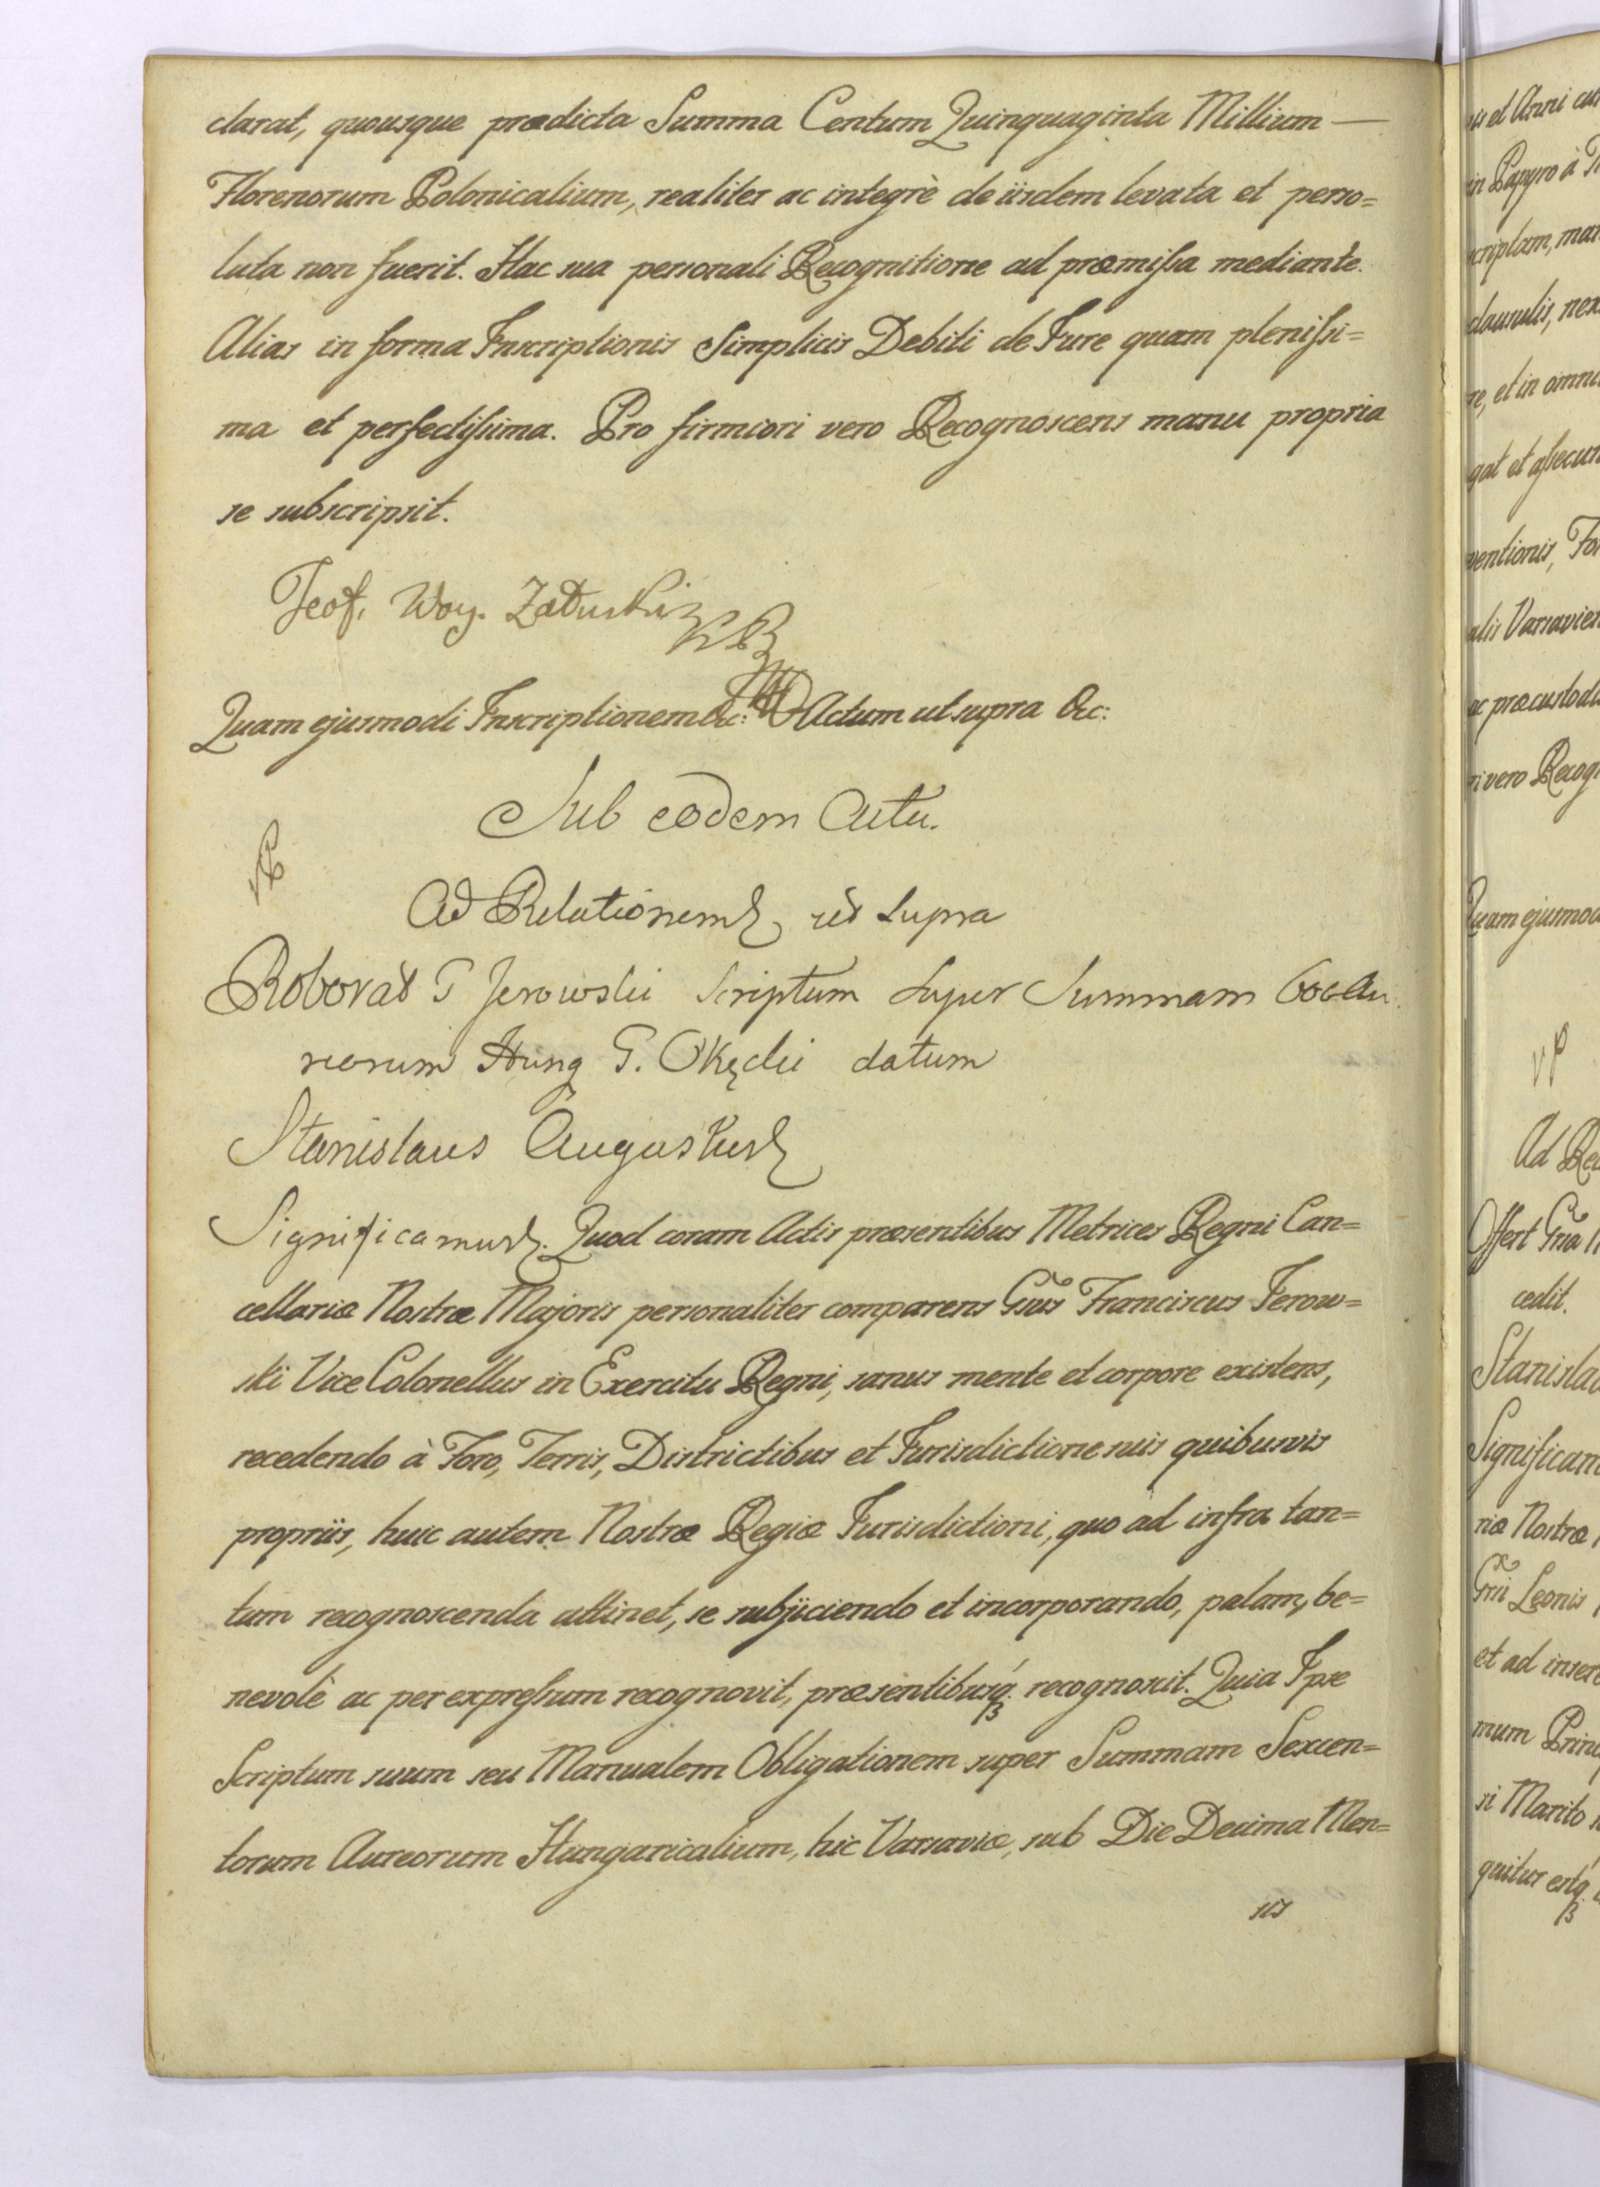 clarat, quousque prædicta Summa Centum Quinquaginta Millium —
Florenorum Polonicalium, realiter ac integrè de iisdem levata et perso=
luta non fuerit. Hac sua personali Recognitione ad præmissa mediante.
Alias in forma Inscriptionis Simplicis Debiti de Jure quam plenissi=
ma et perfectissima. Pro firmiori vero Recognoscens manu propria
se subscripsit.
Teof. Woy. Załuski
Quam ejusmodi Inscriptionem &c: Actum ut supra &c:
Sub eodem Actu.
Ad Relationem ut supra
Roborat G Jerowski Scriptum super Summam 600 Au
reorum Hung G. Okęcki datum
Stanislaus Augustus
Significamus. Quod coram Actis præsentibus Metrices Regni Can=
cellariæ Nostræ Majoris personaliter comparens Gsus Franciscus Jerow=
ski Vice Colonellus in Exercitu Regni, sanus mente et corpore existens,
recedendo à Foro, Terris, Districtibus et Jurisdictione suis quibusvis
propriis, huic autem Nostræ Regiæ Jurisdictioni, quo ad infra tan=
tum recognoscenda attinet, se subjiciendo et incorporando, palam, be=
nevolè ac per expressum recognovit, præsentibusq recognoscit. Quia Ipse
Scriptum suum seu Manualem Obligationem super Summam Sexcen=
torum Aureorum Hungaricalium, hic Varsaviæ, sub Die Decima Men=
sis
is et Anni
in Papyro à
scriptam,
clausulis,
re, et in
gat et
ventionis,
alis
ac
ri vero
Quam
Ad
Offert Gsa
cedit.
Stanisla
Significam
riæ Nostræ
Gsi Leonis
et ad
mum
si Marito
quitur